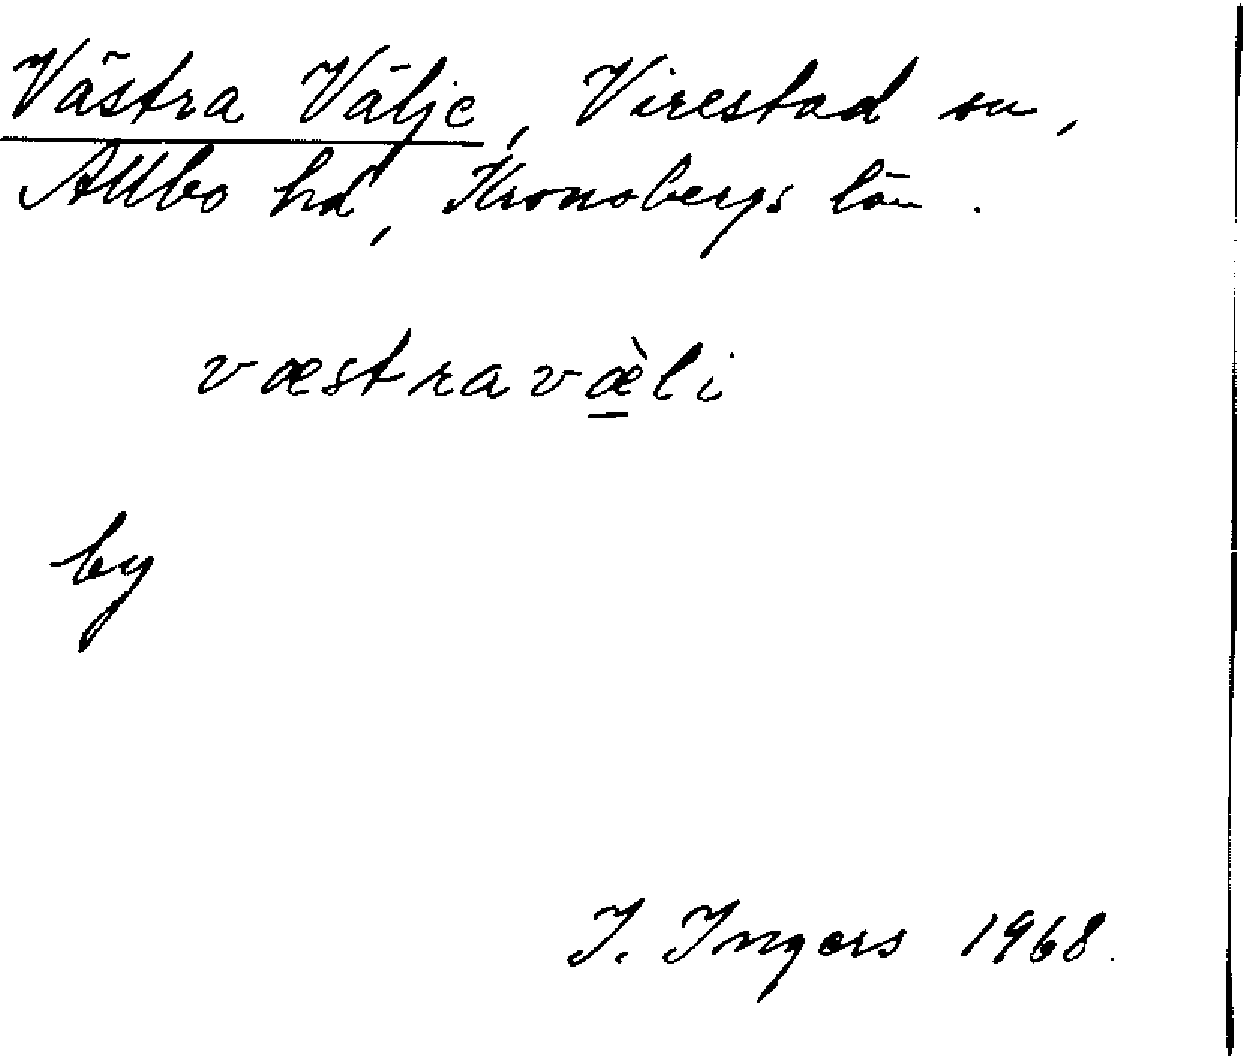 Västra Välje, Virestad sn,
Allbo hd, Kronobergs län.
væstravæ̱̀li
by
I. Ingers 1968.